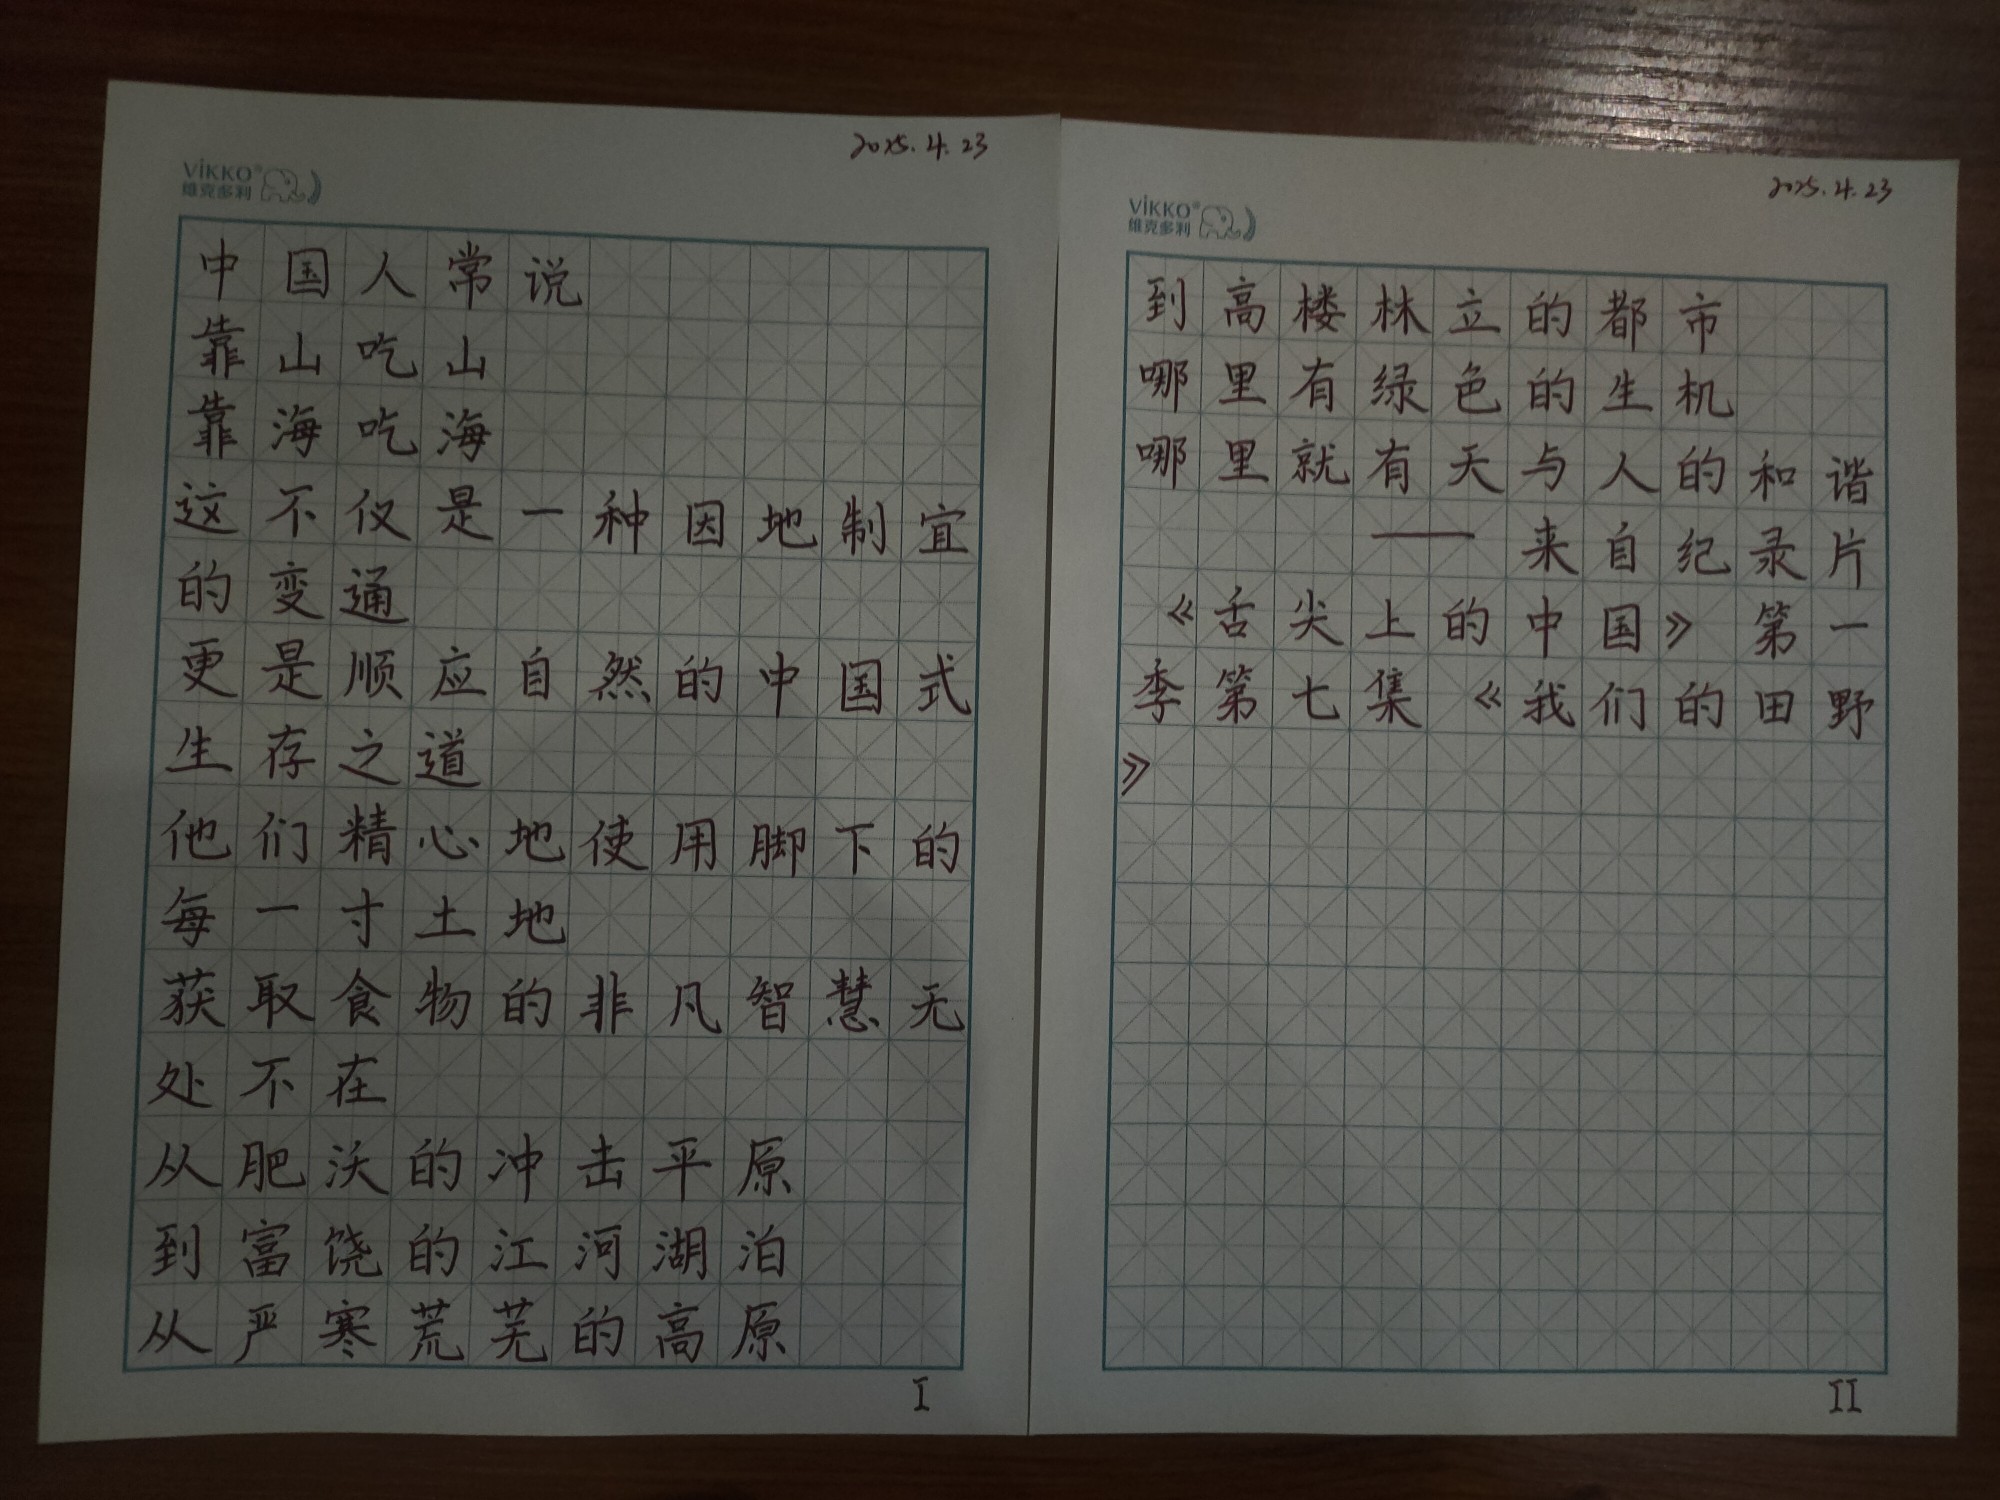 2025.4.23
VIKKO®
维克多利
中国人常说
靠山吃山
靠海吃海
这不仅是一种因地制宜
的变通
更是顺应自然的中国式
生存之道
他们精心地使用脚下的
每一寸土地
获取食物的非凡智慧无
处不在
从肥沃的冲击平原
到富饶的江河湖泊
从严寒荒芜的高原
I
2025.4.23
VIKKO®
维克多利
到高楼林立的都市
哪里有绿色的生机
哪里就有天与人的和谐
——来自纪录片
《舌尖上的中国》第一
季第七集《我们的田野
》
II